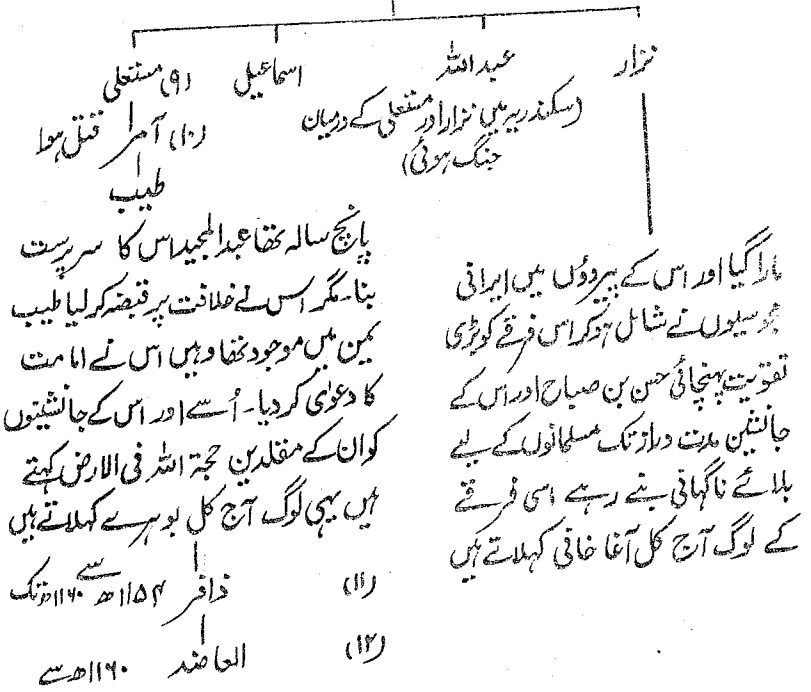 نزار
عبداللہ
اسماعیل
(۹) مستعلی
(سکندریہ میں نزار اور مستعلی کے درمیان
جنگ ہوئی)
(۱۰) آمر قتل ہوا
طیب
مارا گیا اور اس کے پیروؤں میں ایرانی
مجوسیوں نے شامل ہوکر اس فرقے کو بڑی
تقویت پہنچائی حسن بن صباح اور اس کے
جانشین مدت دراز تک مسلمانوں کے لیے
بلائے ناگہانی بنے رہے اسی فرقے
کے لوگ آج کل آغا خانی کہلاتے ہیں
پانچ سالہ تھا عبدالمجید اس کا سرپرست
بنا۔ مگر اس نے خلافت پر قبضہ کرلیا طیب
یمن میں موجود تھا وہیں اس نے امامت
کا دعوٰی کردیا۔ اُسے اور اس کے جانشینوں
کو ان کے مقلدین حجۃ اللہ فی الارض کہتے
ہیں یہی لوگ آج کل بوہرے کہلاتے ہیں
(۱۱) ذافر ۱۱۵۴ھ سے ۱۱۶۰ھ تک
(۱۲) العاضد ۱۱۶۰ھ سے